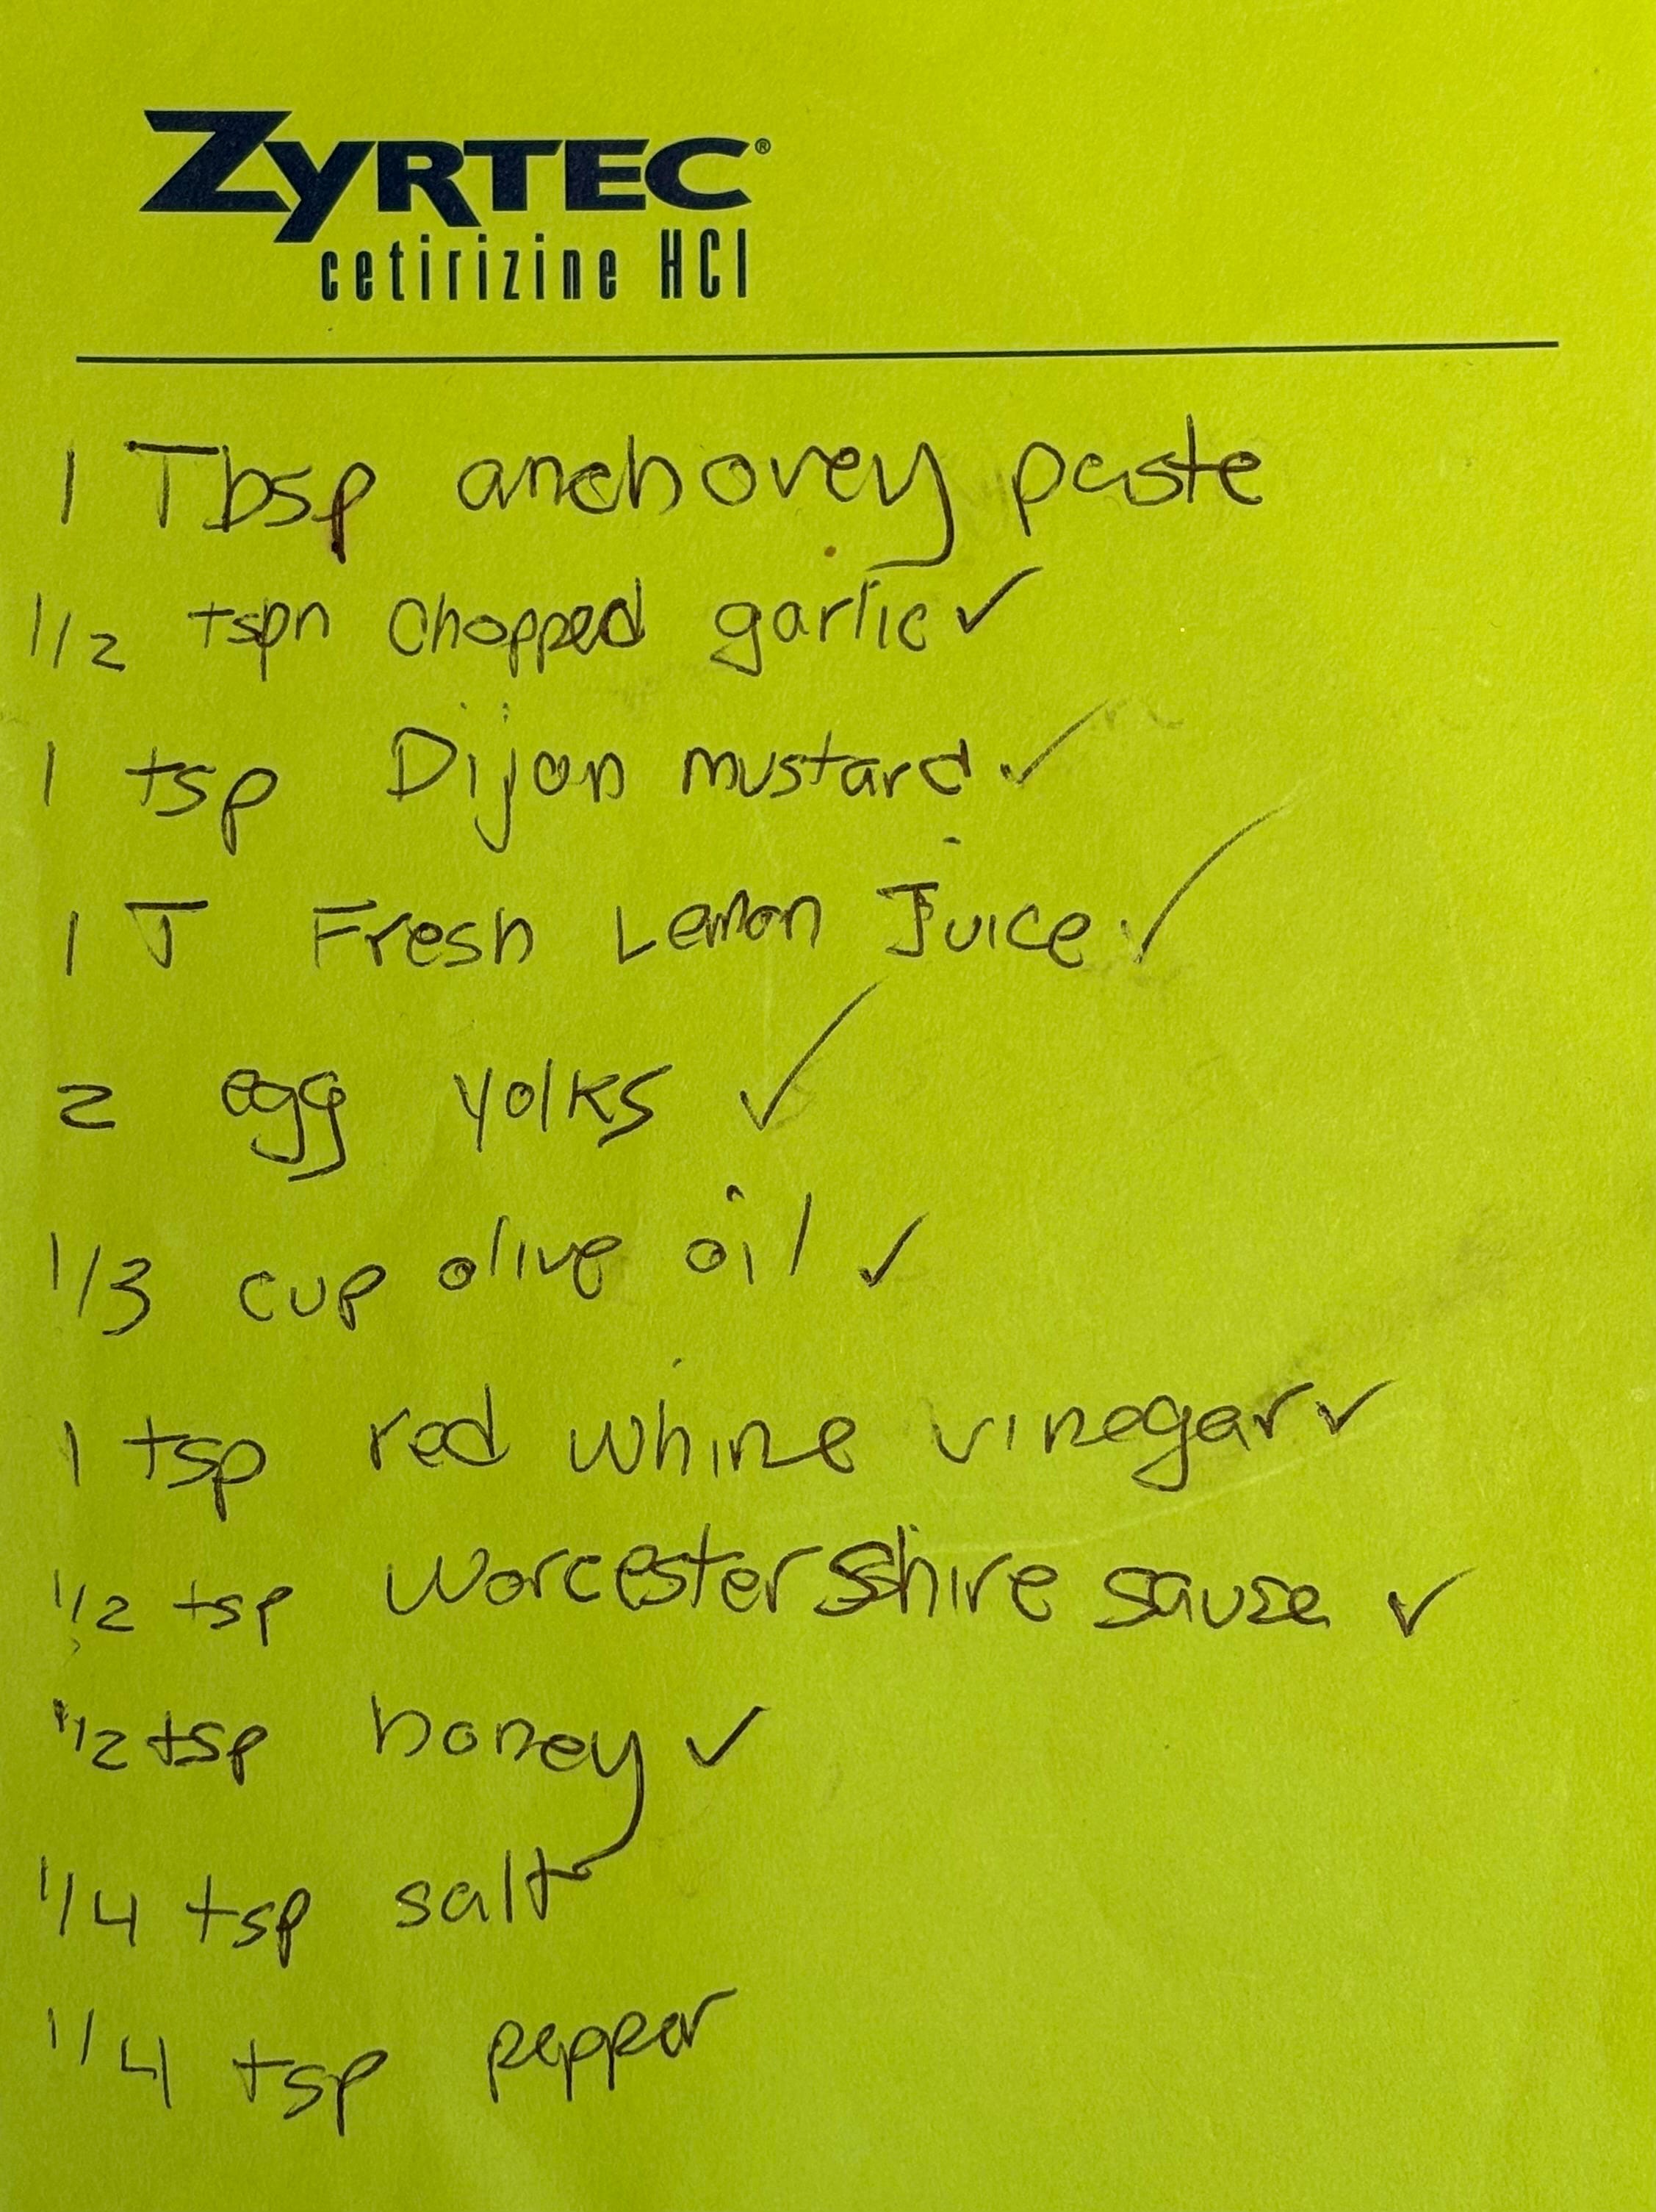 ZYRTEC®
cetirizine HCl
1 Tbsp anchovey paste
1/2 tspn chopped garlic ✓
1 tsp Dijon mustard ✓
1 T Fresh Lemon Juice ✓
2 egg yolks ✓
1/3 cup olive oil ✓
1 tsp red whine vinegar ✓
1/2 tsp Worcestershire sause ✓
1/2 tsp honey ✓
1/4 tsp salt
1/4 tsp pepper